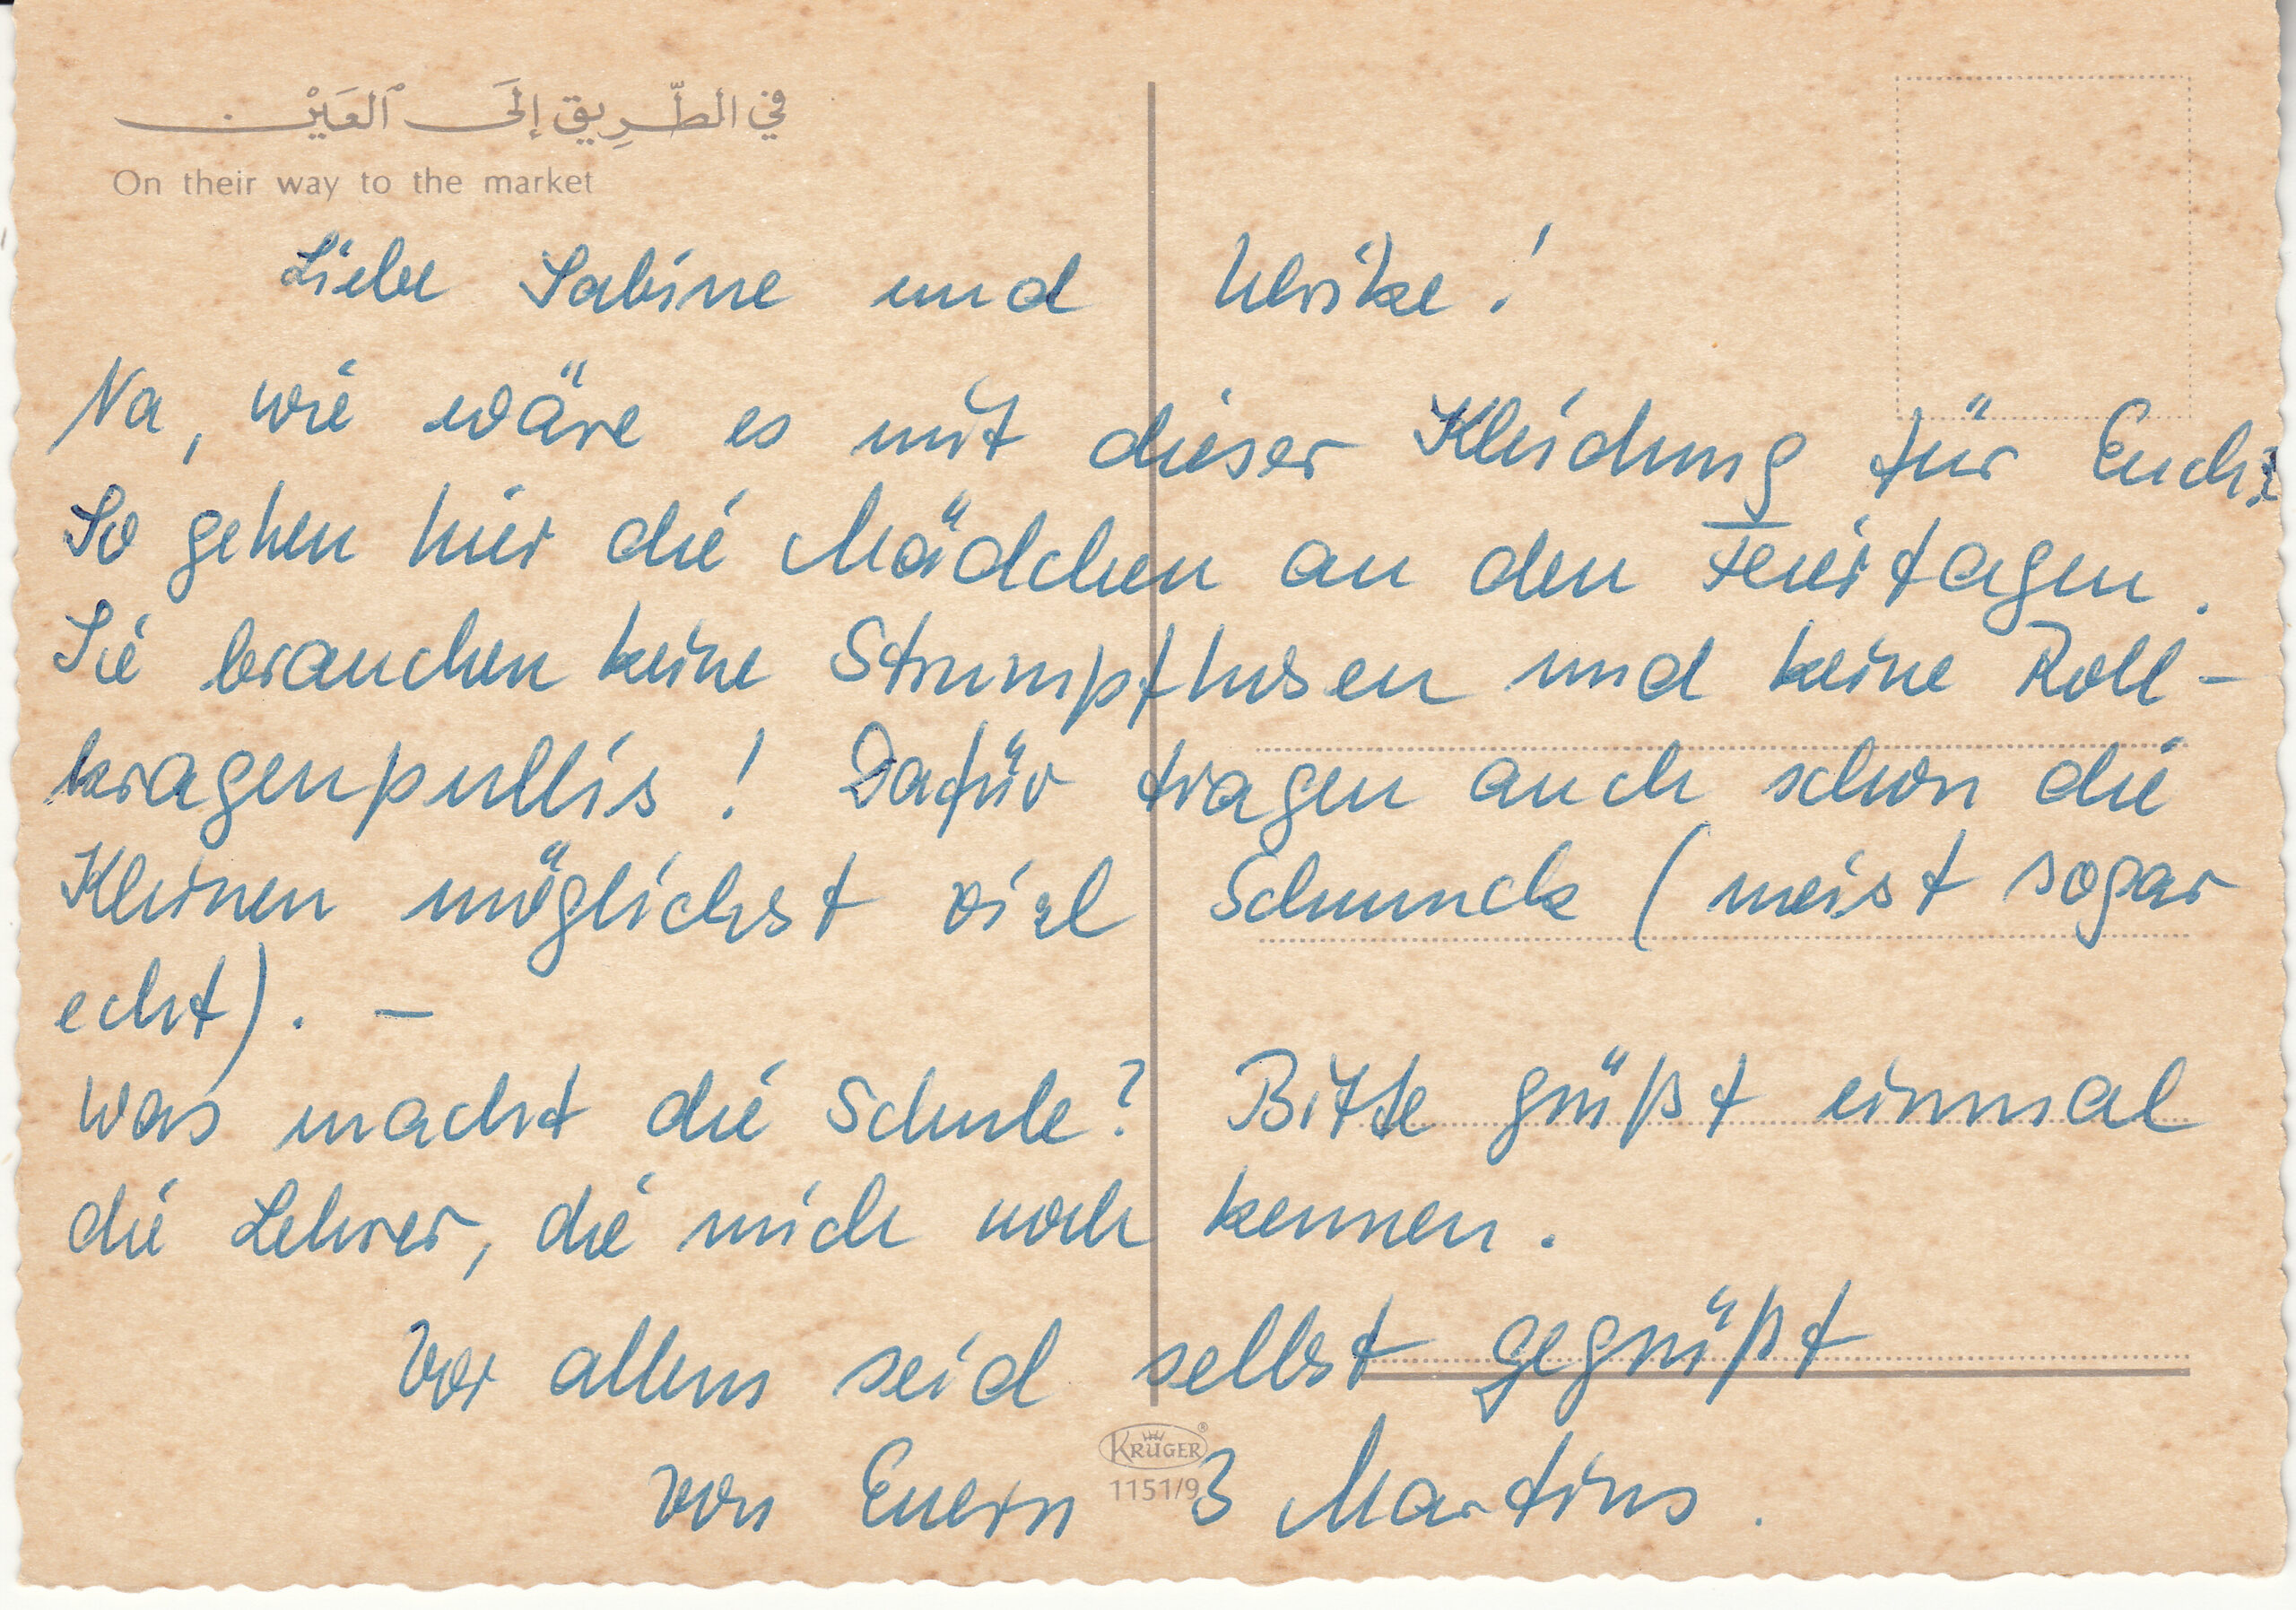 في الطَّرِيق إلَى العَيْن
On their way to the market
Liebe Sabine und Ulrike!
Na, wie wäre es mit dieser Kleidung für Euch?
So gehen hier die Mädchen an den Feiertagen.
Sie brauchen keine Strumpfhosen und keine Roll-
kragenpullis! Dafür tragen auch schon die
Kleinen möglichst viel Schmuck (meist sogar
echt). –
Was macht die Schule? Bitte grüßt einmal
die Lehrer, die mich noch kennen.
Vor allem seid selbst gegrüßt
von Euern 3 Martins.
KRÜGER®
1151/9